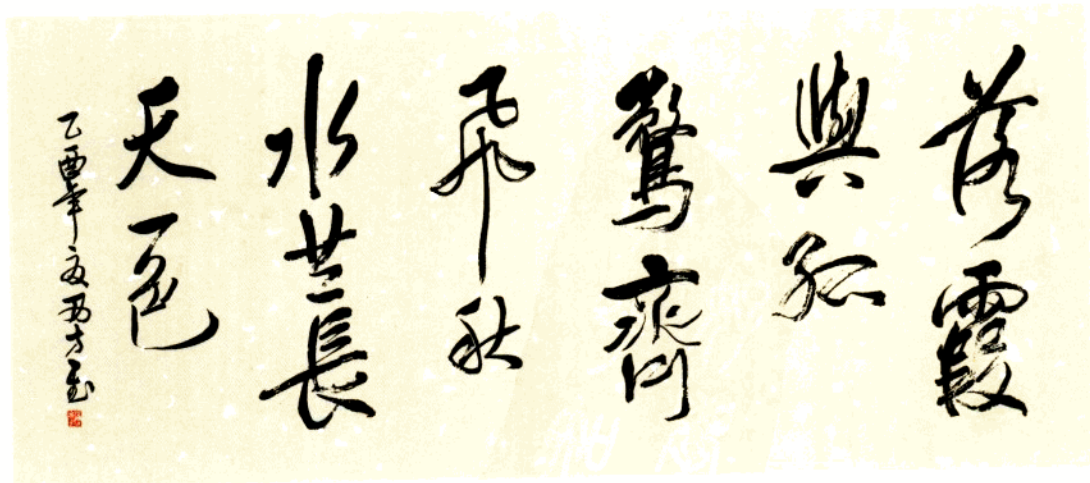 落霞
與孤
鶩齊
飛秋
水共長
天一色
乙酉年夏